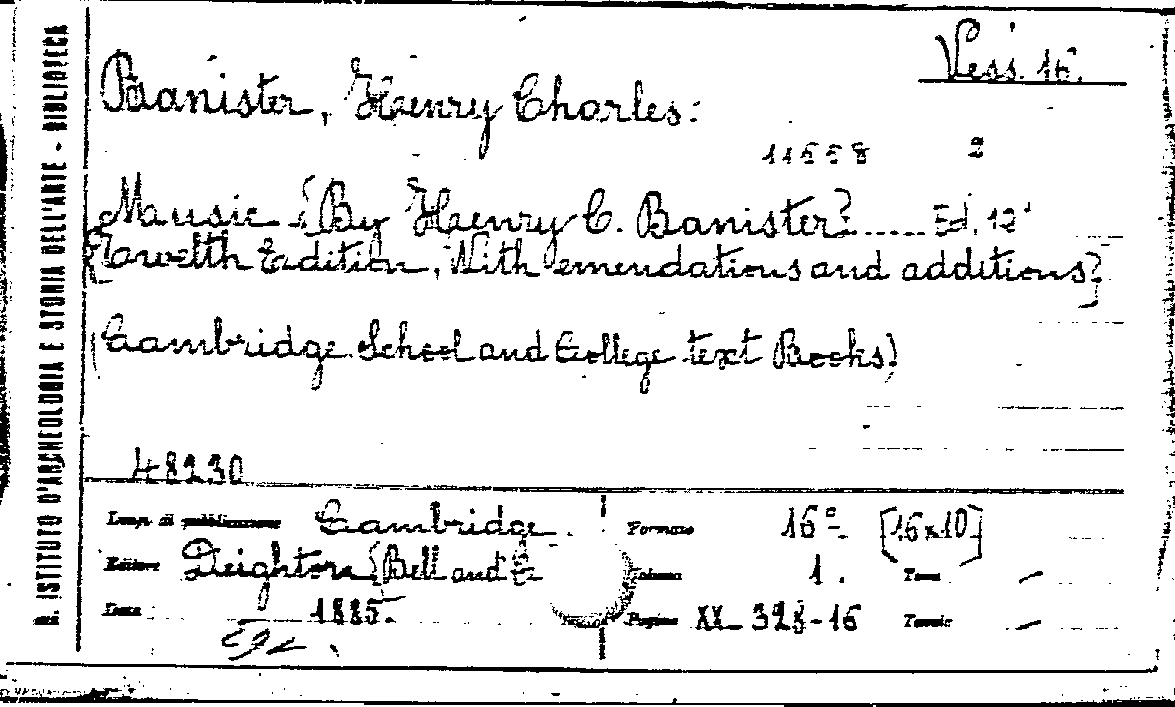 Vess. 16.
Banister, Henry Charles:
11668 2
Music {By Henry C. Banister}..... Ed. 12ª
{Twelfth Edition, With emendations and additions}
(Cambridge School and College text Books)
48230
Luogo di pubblicazione Cambridge
Editore Deighton {Bell and C
Data 1885.
Formato 16° [16x10]
Volume 1. Tomi —
Pagine XX-328-16 Tavole —
R. ISTITUTO D'ARCHEOLOGIA E STORIA DELL'ARTE - BIBLIOTECA